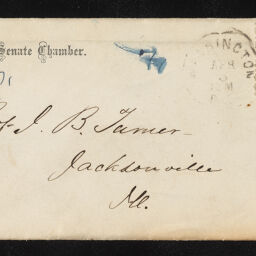 Senate Chamber.
INGTON
MAR
J. B. Turner
Jacksonville
Ill.